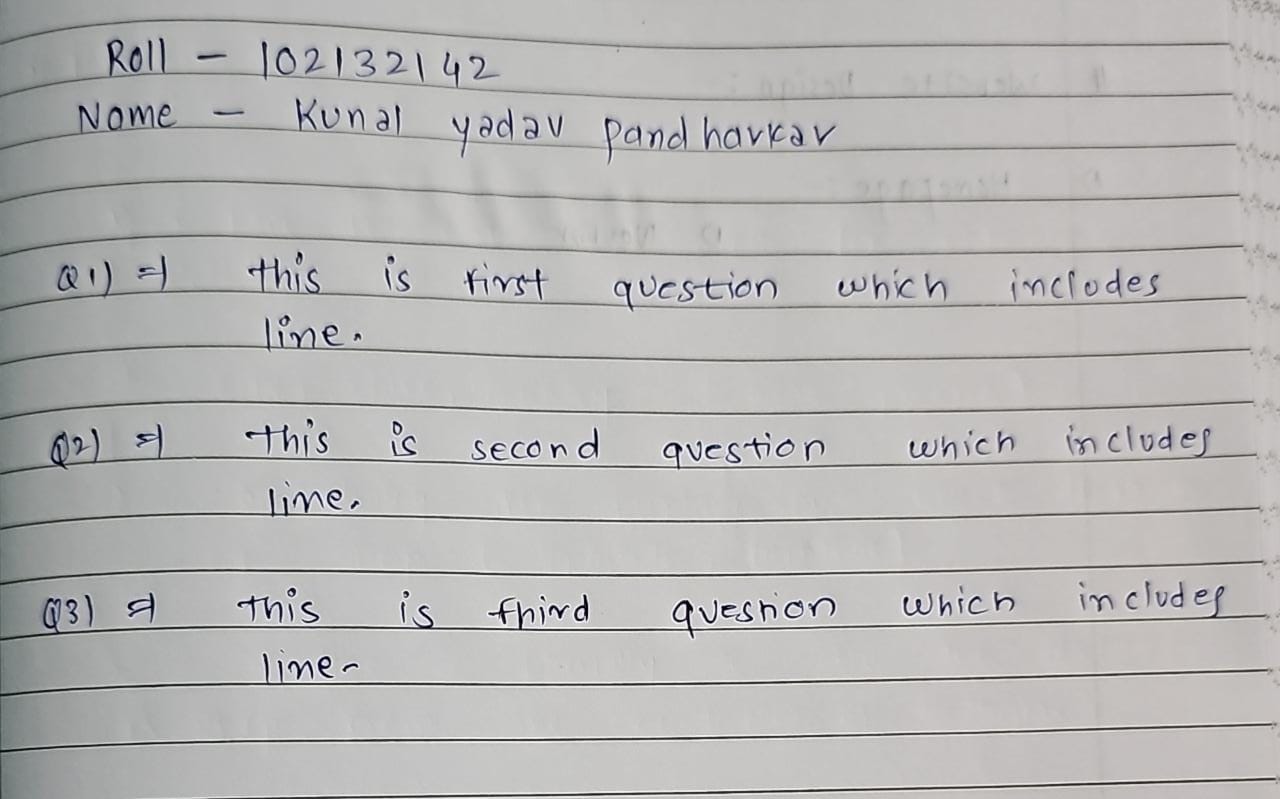 Roll - 102132142
Name - Kunal yadav pandharkar
Q1) ⇒ this is first question which includes
line.
Q2) ⇒ this is second question which includes
line.
Q3) ⇒ this is third question which includes
line.